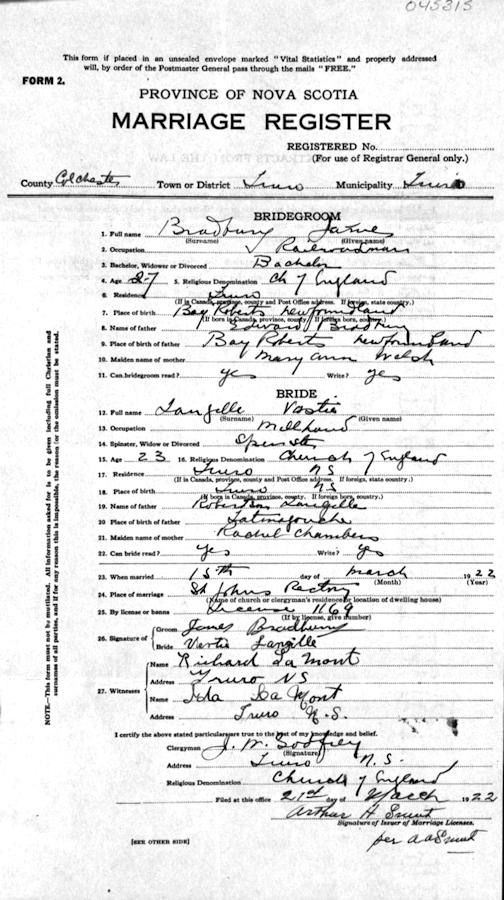 045315
This form if placed in an unsealed envelope marked "Vital Statistics" and properly addressed
will, by order of the Postmaster General pass through the mails "FREE."
FORM 2.
PROVINCE OF NOVA SCOTIA
MARRIAGE REGISTER
REGISTERED No.
(For use of Registrar General only.)
County Colchester Town or District Truro Municipality Truro
BRIDEGROOM
1. Full name Bradbury
(Surname) (Given name)
2. Occupation Railroadman
3. Bachelor, Widower or Divorced Bachelor
4. Age 27 5. Religious Denomination Ch of England
6. Residence Truro
(If in Canada, province, county and Post Office address. If foreign, state country)
7. Place of birth Bay Roberts Newfoundland
(If born in Canada, province, county. If foreign, country.)
8. Name of father Edward Bradbury
9. Place of birth of father Bay Roberts Newfoundland
10. Maiden name of mother Mary Ann Welsh
11. Can bridegroom read? yes Write? yes
BRIDE
12. Full name Langille Vestie
(Surname) (Given name)
13. Occupation Mill hand
14. Spinster, Widow or Divorced Spinster
15. Age 23 16. Religious Denomination Church of England
17. Residence Truro NS
(If in Canada, province, county and Post Office address. If foreign, state country.)
18. Place of birth Truro NS
(If born in Canada, province, county. If foreign, country.)
19. Name of father Robertson Langille
20. Place of birth of father Tatamagouche
21. Maiden name of mother Rachel Chambers
22. Can bride read? Yes Write? Yes
23. When married 15th day of March 1922
(Month) (Year)
24. Place of marriage St Johns Rectory
(Name of church or clergyman's residence or location of dwelling house)
25. By license or banns License 1169
(If by license, give number)
26. Signature of Groom James Bradbury
Bride Vestie Langille
27. Witnesses Name Richard La Mont
Address Truro NS
Name Ida La Mont
Address Truro N.S.
I certify the above stated particulars are true to the best of my knowledge and belief.
Clergyman J. W. Godfrey
(Signature)
Address Truro N.S.
Religious Denomination Church of England
Filed at this office 21st day of March 1922
Arthur H Smith
Signature of Issuer of Marriage Licenses.
per
[SEE OTHER SIDE]
NOTE—This form must not be mutilated. All information asked for is to be given including full Christian and
surnames of all parties, and if for any reason this is impossible, the reason for the omission must be stated.